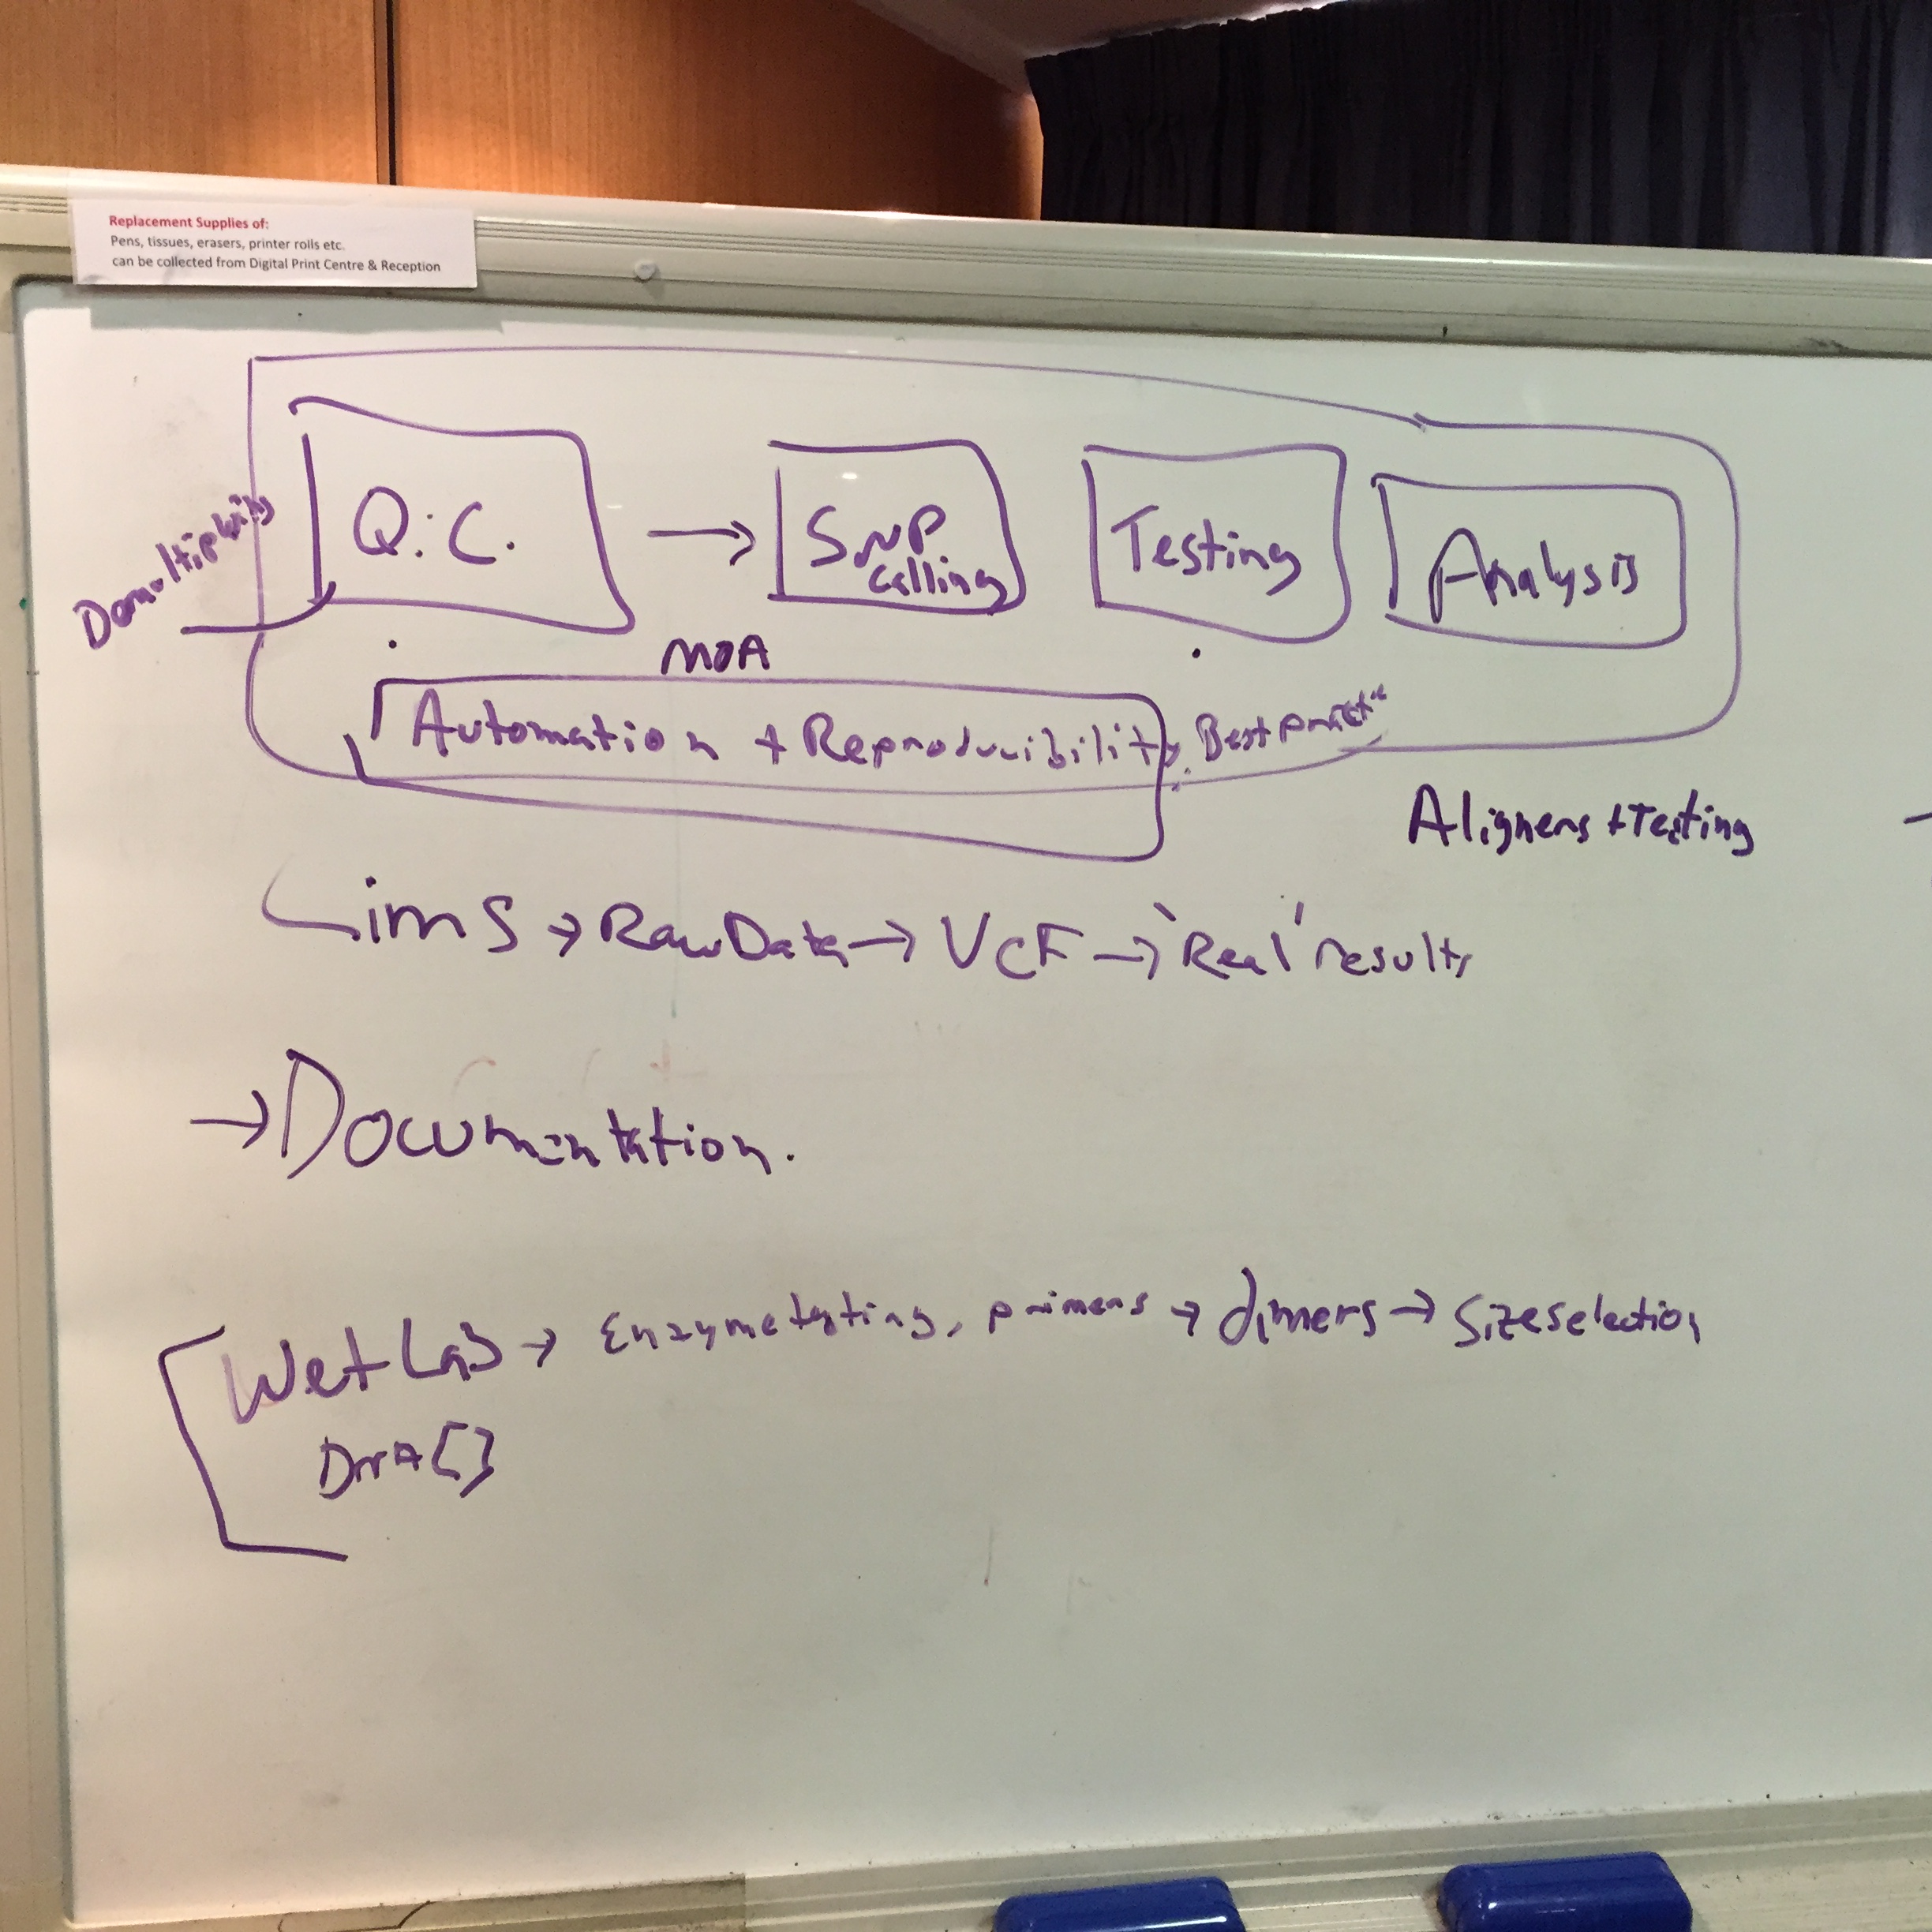 Replacement Supplies of:
Pens, tissues, erasers, printer rolls etc.
can be collected from Digital Print Centre & Reception
Q.C. → SNP Calling Testing Analysis
MOA
Automation + Reproducibility, Best
Aligners + Testing
Lims → Raw Data → VCF → 'Real' results
→ Documentation.
Wet Lab → Enzyme testing, primers → dimers → Size selection
DNA []